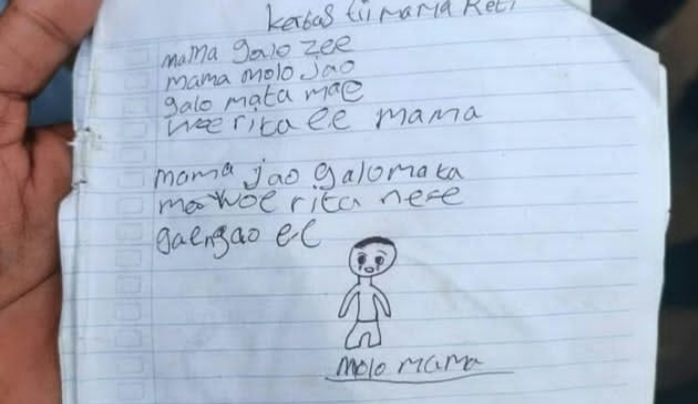 kertas tii mama Reti
mama galo zee
mama molo jao
galo mata mae
woe rita ee mama
mama jao galo mata
mae woe rita nese
gaengao ee
molo mama